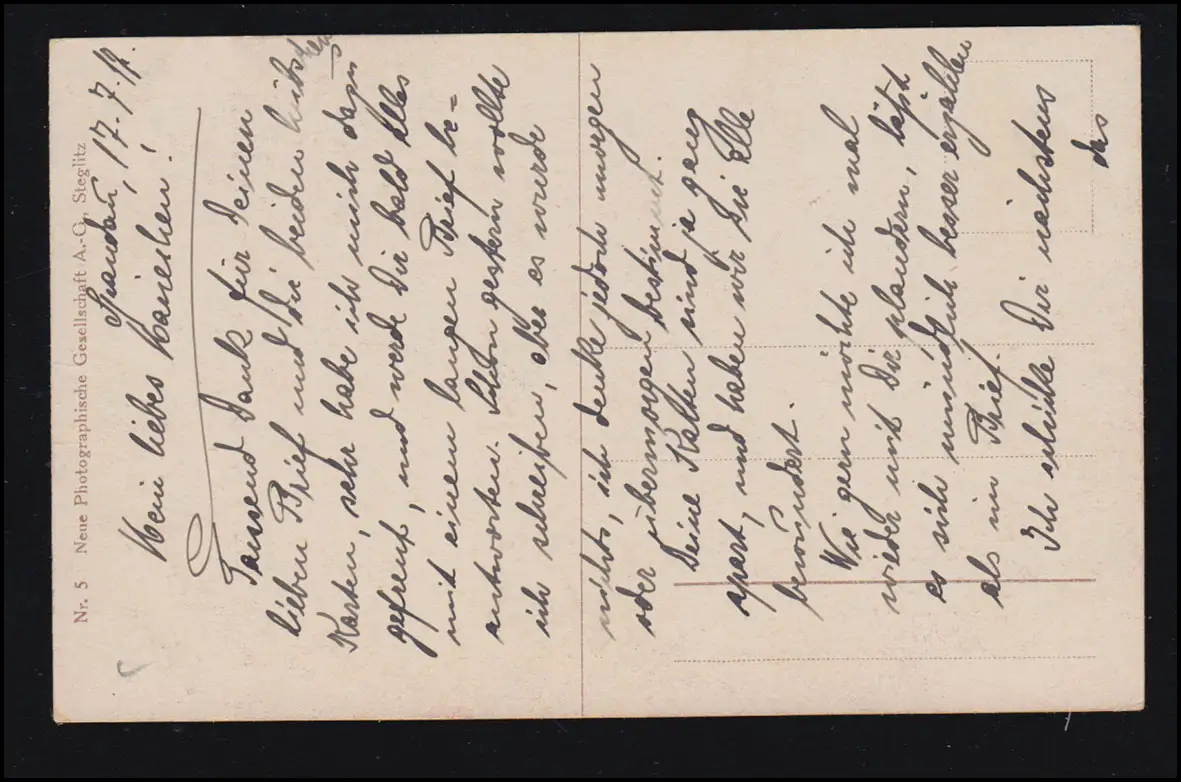 Nr. 5 Neue Photographische Gesellschaft A.-G. Steglitz
Spandau, 17.7.17.
Mein liebes Mariechen!
Tausend Dank für Deinen
lieben Brief und die beiden hübschen
Karten, sehr habe ich mich dazu
gefreut, und werde Dir bald Alles
mit einem langen Brief be-
antworten. Schon gestern wollte
ich schreiben, aber es wurde
nichts, ich denke jedoch morgen
oder übermorgen bestimmt.
Deine Karten sind ja ganz
apart, und haben wir sie Alle
bewundert.
Wie gern möchte ich mal
wieder mit Dir plaudern, läßt
es sich mündlich besser erzählen
als im Brief.
Ich schicke Dir nächstens
das